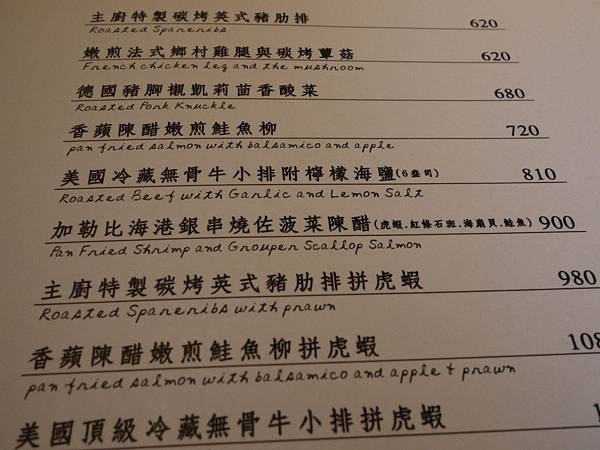 主廚特製碳烤英式豬肋排 620
Roasted Spareribs
嫩煎法式鄉村雞腿與碳烤蕈菇 620
French chicken leg and the mushroom
德國豬腳襯凱莉茴香酸菜 680
Roasted Pork Knuckle
香蘋陳醋嫩煎鮭魚柳 720
pan fried salmon with balsamico and apple
美國冷藏無骨牛小排附檸檬海鹽(6盎司) 810
Roasted Beef with Garlic and Lemon Salt
加勒比海港銀串燒佐菠菜陳醋(虎蝦.紅條石斑.海扇貝.鮭魚) 900
Pan Fried Shrimp and Grouper Scallop Salmon
主廚特製碳烤英式豬肋排拼虎蝦 980
Roasted Spareribs with prawn
香蘋陳醋嫩煎鮭魚柳拼虎蝦 108
pan fried salmon with balsamico and apple & prawn
美國頂級冷藏無骨牛小排拼虎蝦 1